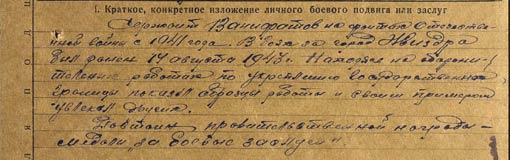 1. Краткое, конкретное изложение личного боевого подвига или заслуг
Сержант Ванифатов на фронтах Отечестве-
нной войны с 1941 года. В боях за город Жиздра
был ранен 14 августа 1943 г. Находясь на оборони-
тельных работах по укреплению государственной
границы показал образцы работы и своим примером
увлекал других.
Достоин правительственной награды -
медали "за боевые заслуги"